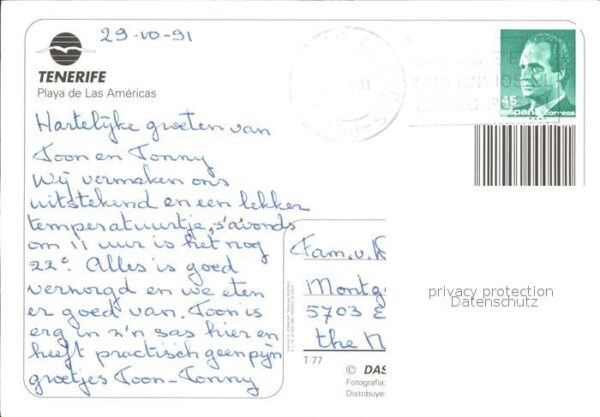 29-10-91
TENERIFE
Playa de Las Américas
Hartelijke groeten van
Toon en Tonny
Wij vermaken ons
uitstekend en een lekker
temperatuurtje, s'avonds
om 11 uur is het nog
22°. Alles is goed
verzorgd en we eten
er goed van. Toon is
erg in z'n sas hier en
heeft practisch geen pijn
groetjes Toon-Tonny
45
españa Correos
SUS ENVIOS
CODIGO P
Fam. v.
Montg
5703 E
the N
privacy protection
Datenschutz
T 77
© DAS
Fotografía:
Distribuye: